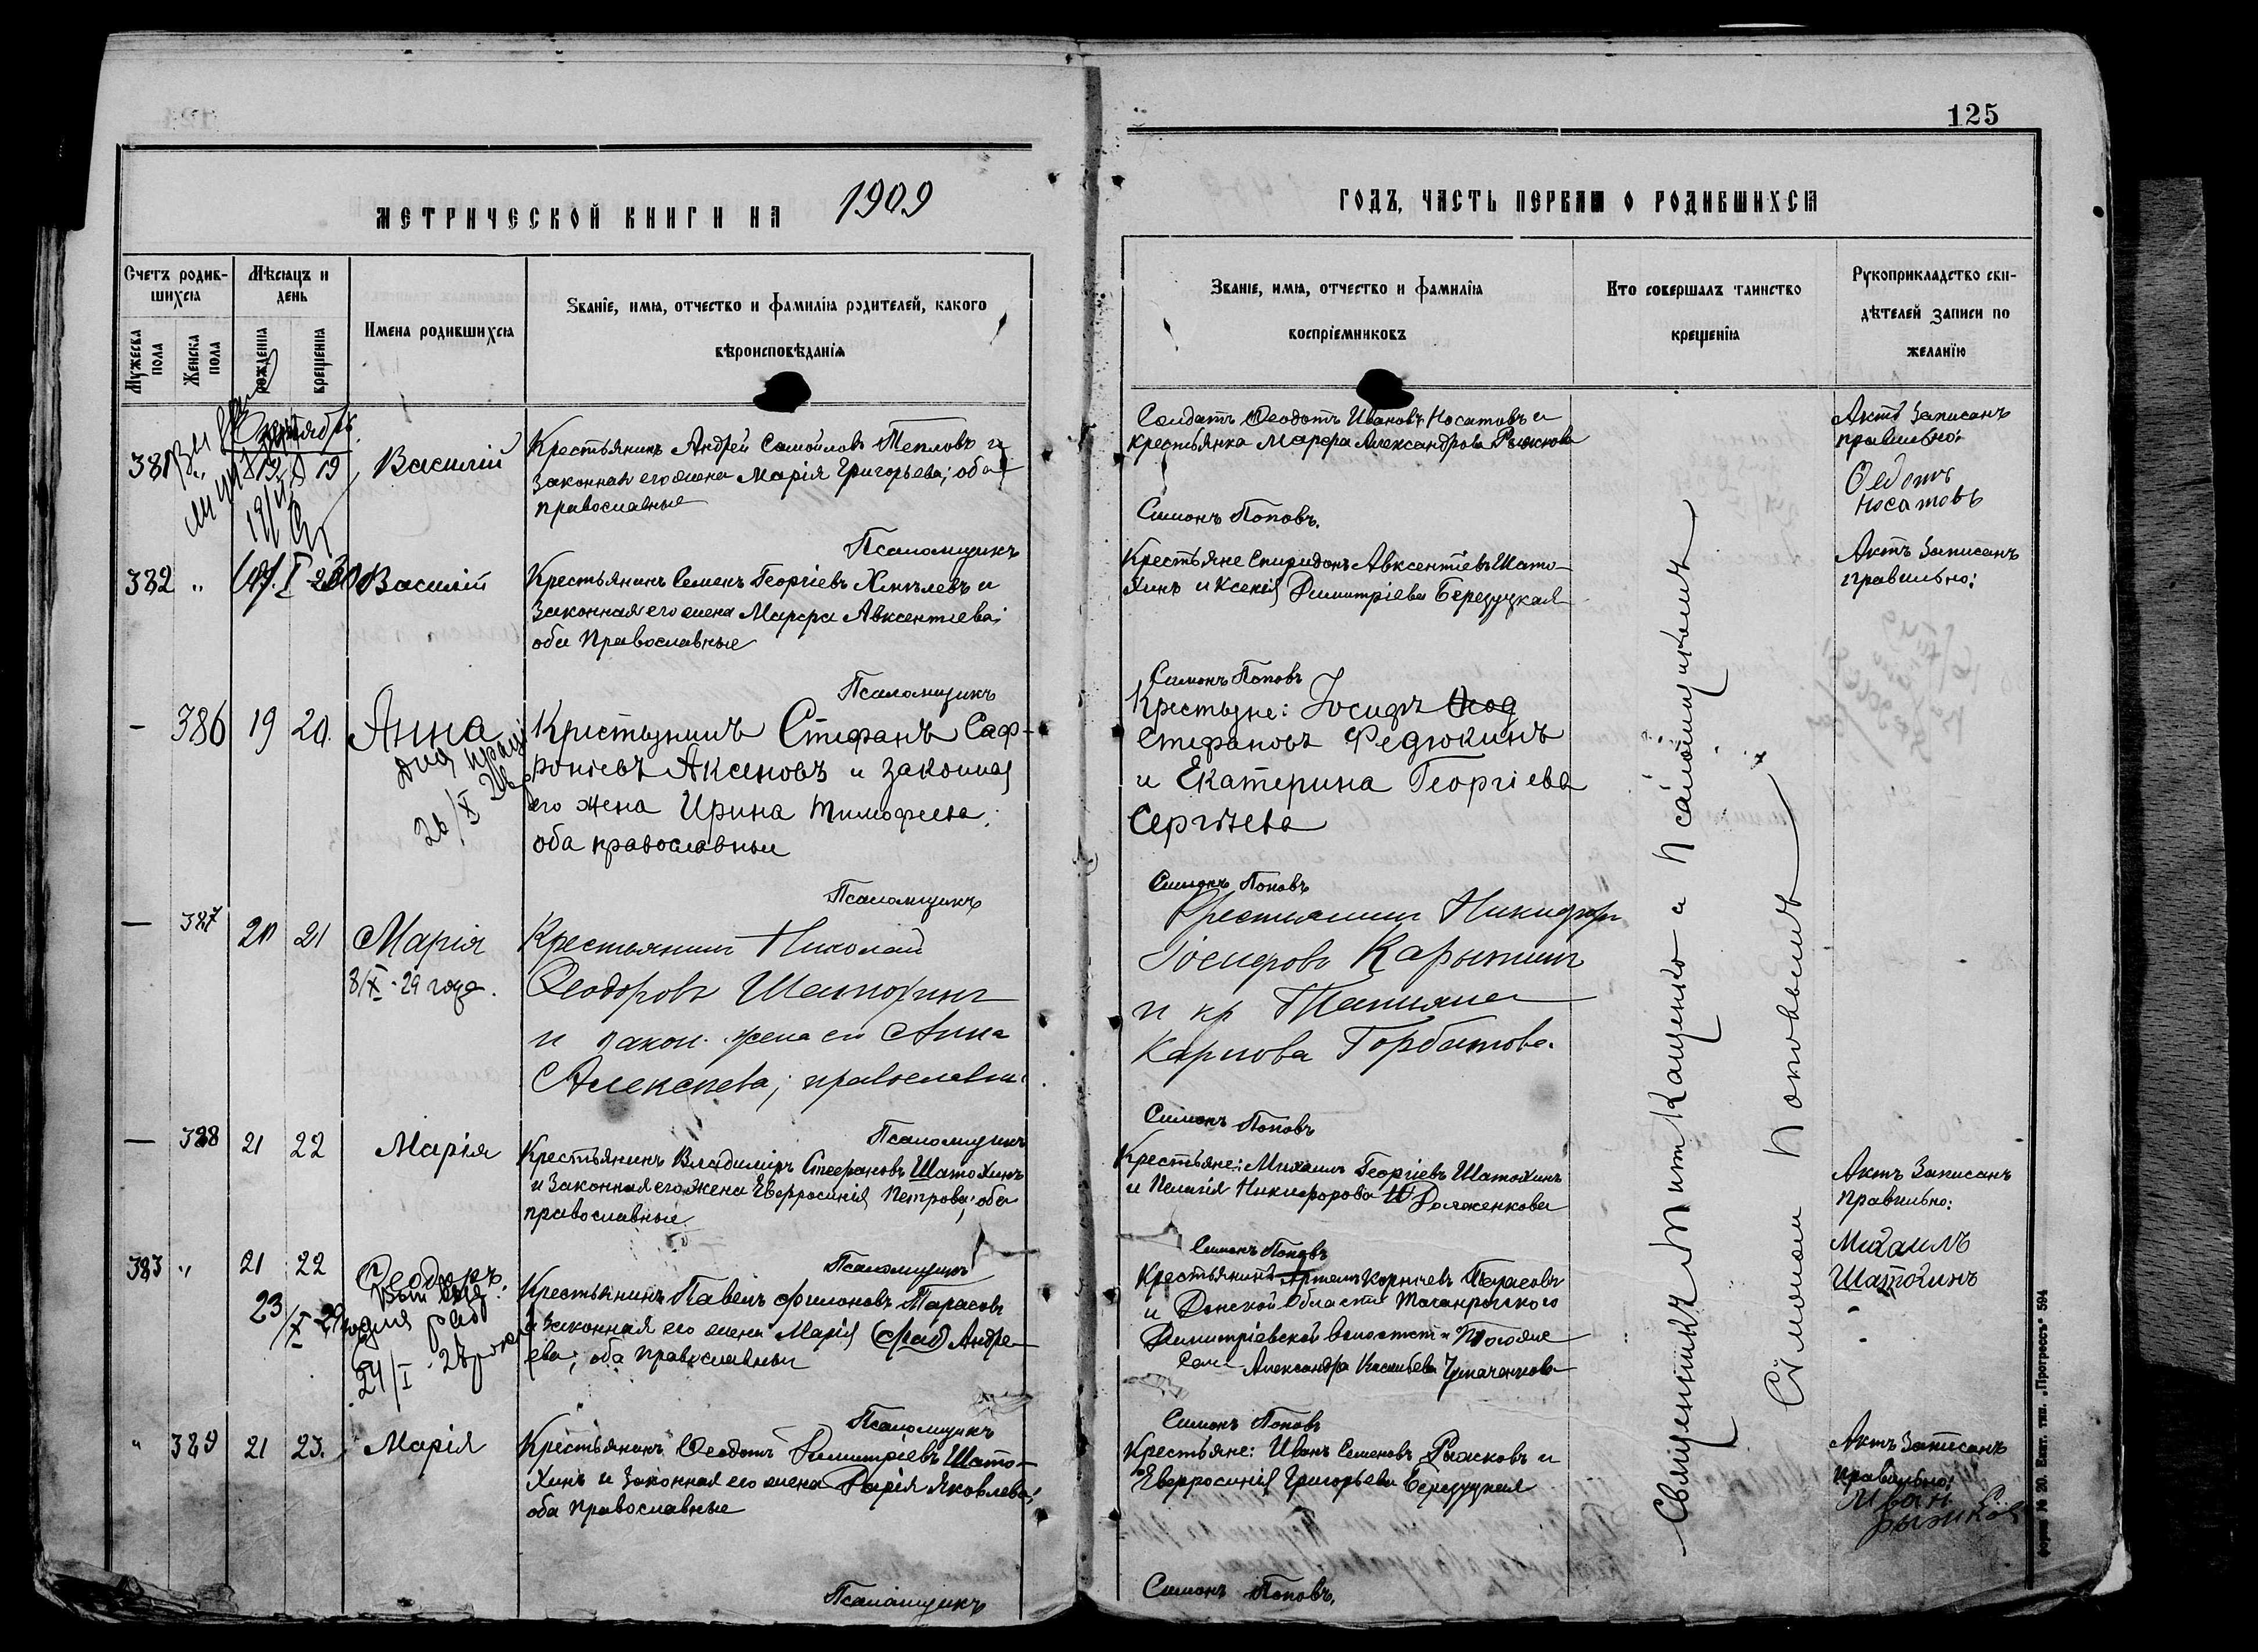 125
МЕТРИЧЕСКОЙ КНИГИ НА 1909
ГОДЪ, ЧАСТЬ ПЕРВАЯ О РОДИВШИХСЯ
Счетъ родив-
шихся
Мѣсяцъ и
день
Мужеска
пола
Женска
пола
рожденія
крещенія
Имена родившихся
Званіе, имя, отчество и фамилія родителей, какого
вѣроисповѣданія
Званіе, имя, отчество и фамилія
воспріемниковъ
Кто совершалъ таинство
крещенія
Рукоприкладство сви-
дѣтелей записи по
желанію
381 " 19 Василій
Крестьянинъ Андрей Самойловъ Тепловъ и
законная его жена Марія Григорьева; оба
православные
Псаломщикъ
Солдатъ Ѳеодотъ Ивановъ Носатовъ и
крестьянка Марфа Александрова Рыжкова
Симонъ Поповъ.
Актъ записанъ
правильно:
Ѳедотъ
Носатовъ
382 " Василій
Крестьянинъ Семенъ Георгіевъ Хмѣлевъ и
законная его жена Марфа Авксентіева;
оба Православные
Псаломщикъ
Крестьяне Спиридонъ Авксентіевъ Шато-
хинъ и Ксенія Димитріева Березуцкая
Симонъ Поповъ
Актъ записанъ
правильно:
— 386 19 20. Анна
Крестьянинъ Стефанъ Саф-
роніевъ Аксеновъ и законная
его жена Ирина Тимофеева;
оба православные
Псаломщикъ
Крестьяне: Іосифъ
Стефановъ Федюкинъ
и Екатерина Георгіева
Сергѣева
Симонъ Поповъ
— 387 20 21 Марія
8/X - 29 года.
Крестьянинъ Николай
Ѳеодоровъ Шатохинъ
и закон. жена его Анна
Алексѣева; православны
Псаломщикъ
Крестьянинъ Никифоръ
Іосифовъ Карыкинъ
и кр Татьяна
Карпова Горбатова.
Симонъ Поповъ
— 388 21 22 Марія
Крестьянинъ Владиміръ Стефановъ Шатохинъ
и законная его жена Евфросинія Петрова; оба
православные
Псаломщикъ
Крестьяне: Михаилъ Георгіевъ Шатохинъ
и Пелагія Никифорова Долженкова
Симонъ Поповъ
Актъ записанъ
правильно:
Михаилъ
Шатохинъ
383 " 21 22 Ѳеодоръ.
Крестьянинъ Павелъ Филоновъ Тарасовъ
и законная его жена Марія Андре-
ева; оба православные
Псаломщикъ
Крестьянинъ Артемъ Корніевъ Тарасовъ
и Донской области Таганрогскаго
Димитріевской волости
Александра Чумаченкова
Симонъ Поповъ
" 389 21 23. Марія
Крестьянинъ Ѳеодотъ Димитріевъ Шато-
хинъ и законная его жена Дарія Яковлева;
оба Православные
Псаломщикъ
Крестьяне: Иванъ Семеновъ Рыжковъ и
Евфросинія Григорьева Березуцкая
Симонъ Поповъ.
Актъ записанъ
правильно:
Иван
Рыжков
Священникъ Тит Кащенко и Псаломщикомъ
Симономъ Поповымъ
форма № 20. Екат. тип. „Прогрессъ" 594